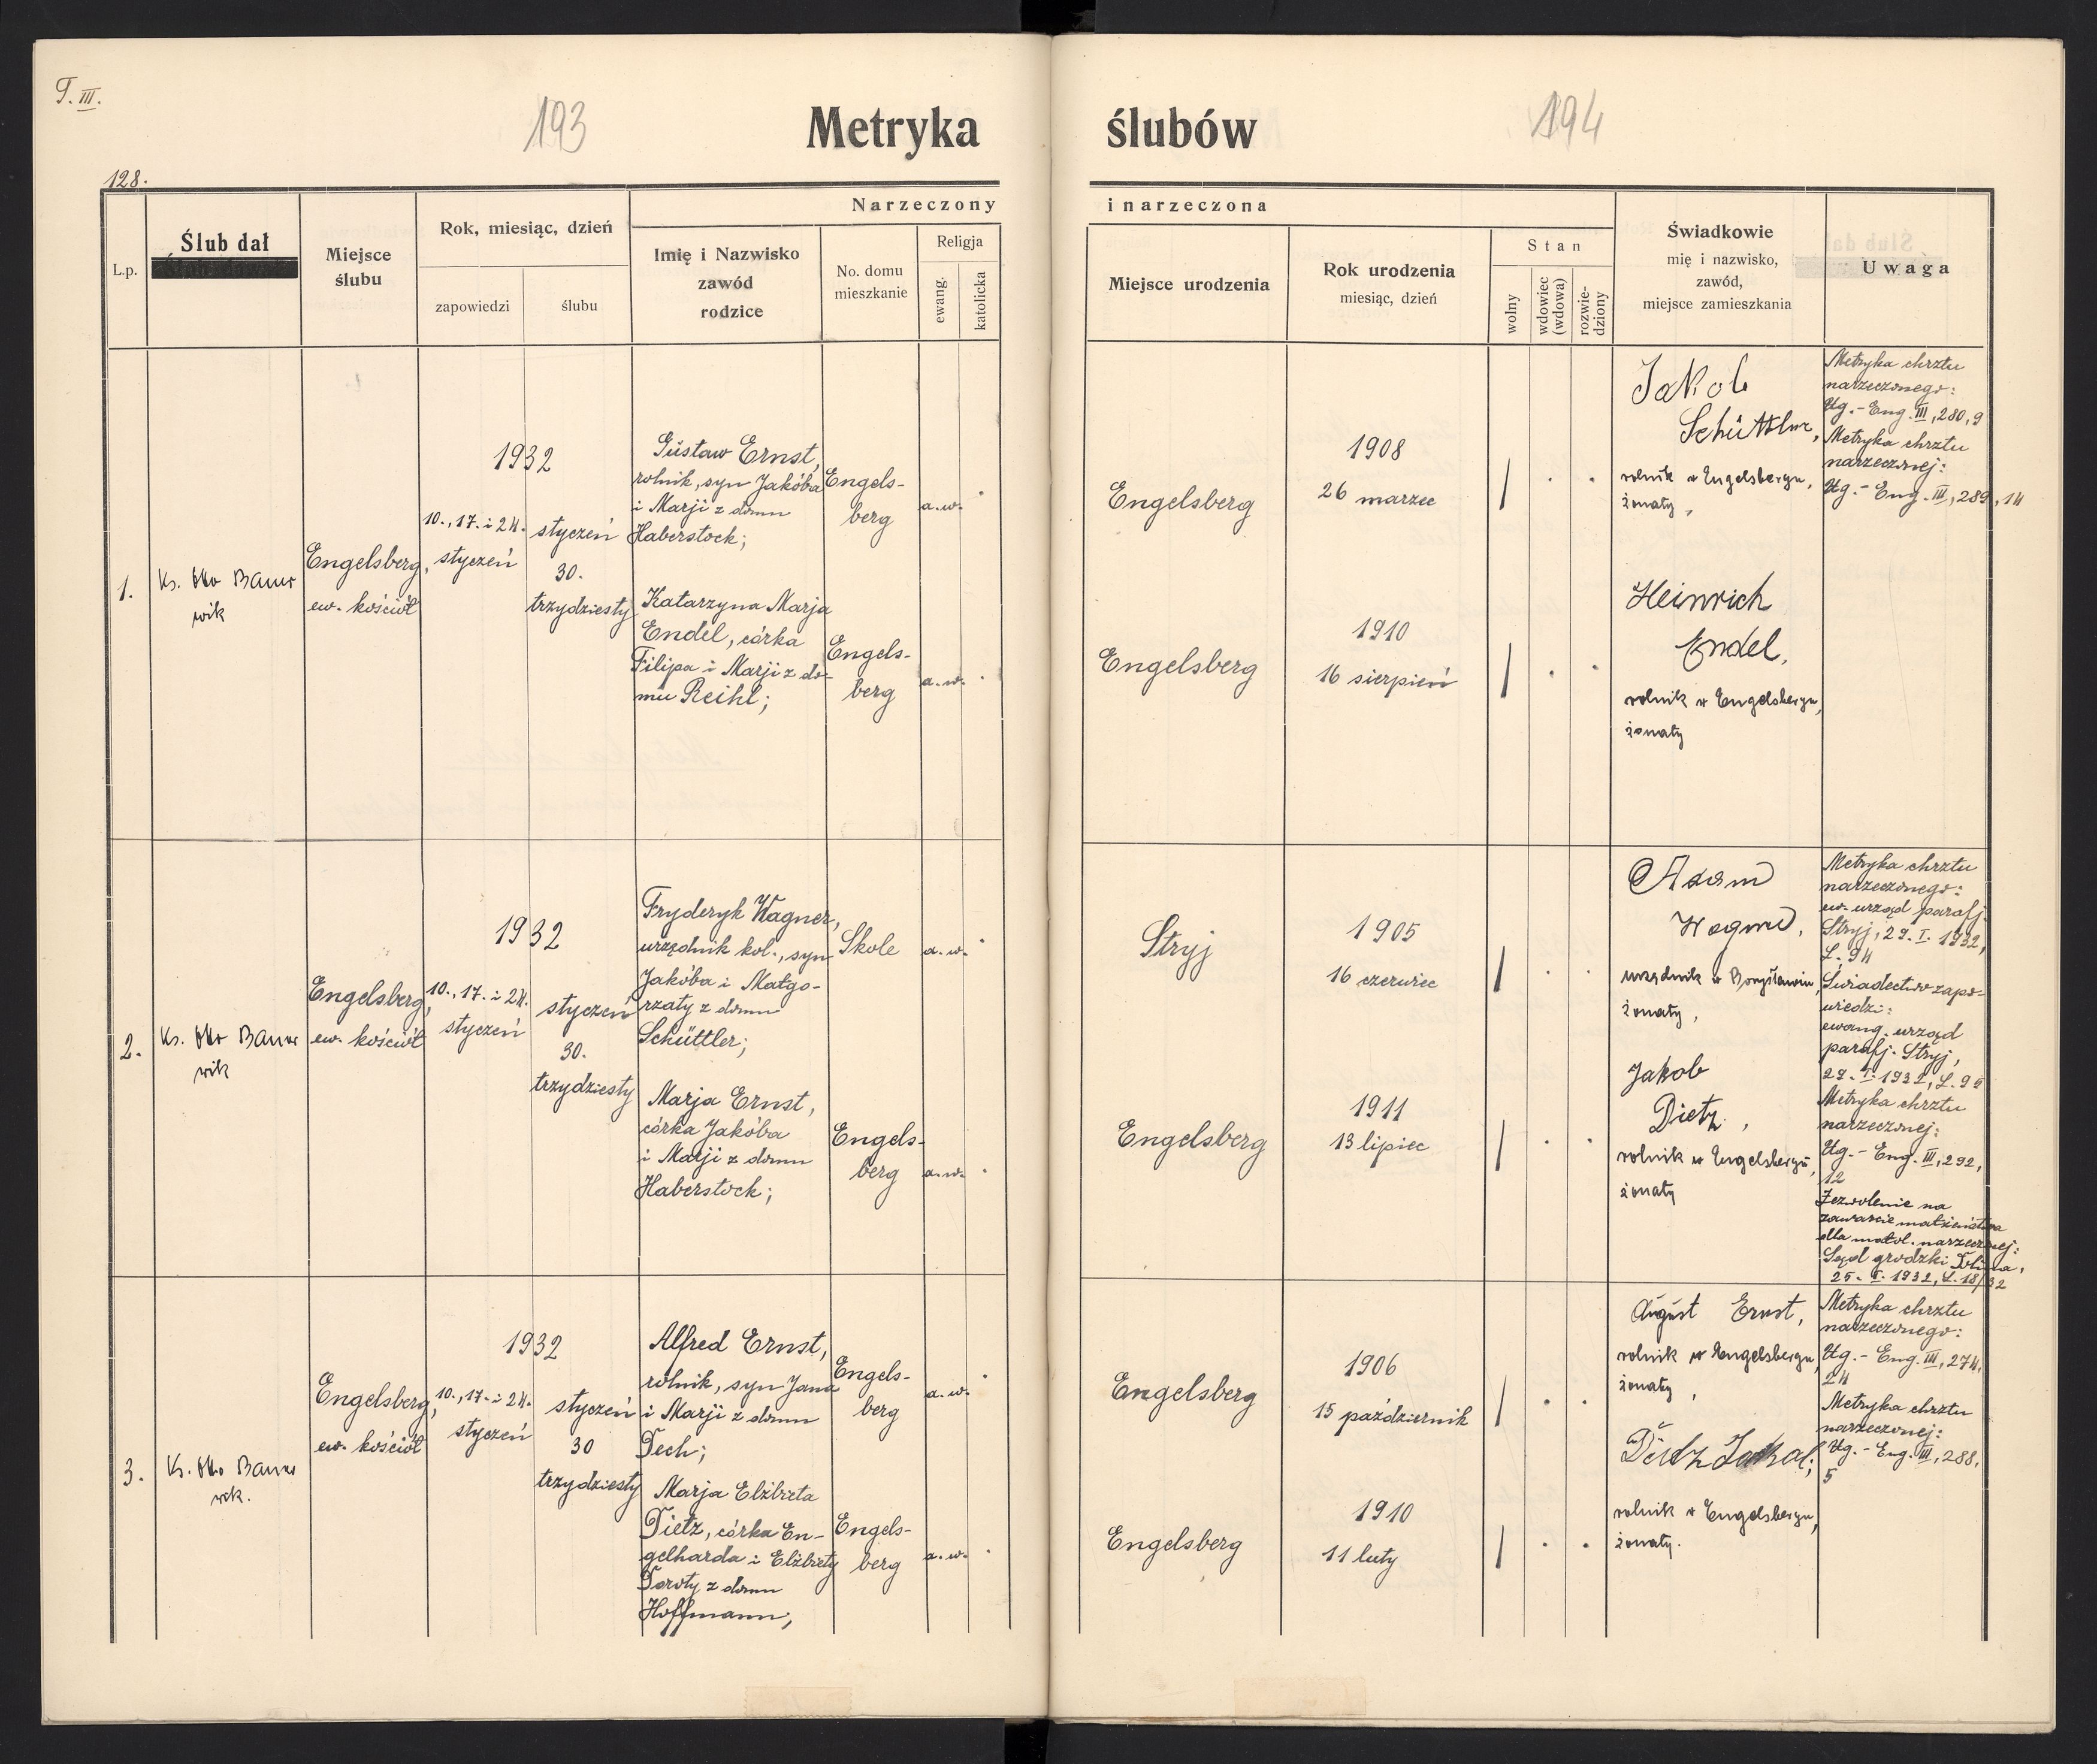 T. III.
193
Metryka
ślubów
194
128.
L.p.
Ślub dał
Miejsce
ślubu
Rok, miesiąc, dzień
zapowiedzi
ślubu
Narzeczony
i narzeczona
Imię i Nazwisko
zawód
rodzice
No. domu
mieszkanie
Religja
ewang.
katolicka
Miejsce urodzenia
Rok urodzenia
miesiąc, dzień
Stan
wolny
wdowiec
(wdowa)
rozwie-
dziony
Świadkowie
mię i nazwisko,
zawód,
miejsce zamieszkania
Uwaga
1.
Ks. Otto Bauer
wik
Engelsberg,
ew. kościół
1932
10., 17. i 24.
styczeń
styczeń
30.
trzydziesty
Gustaw Ernst,
rolnik, syn Jakóba
i Marji z domu
Haberstock;
Engels-
berg
a. w.
Katarzyna Marja
Endel, córka
Filipa i Marji z do-
mu Reihl;
Engels-
berg
a. w.
Engelsberg
1908
26 marzec
Engelsberg
1910
16 sierpień
Jakob
Schüttler,
rolnik w Engelsbergu,
żonaty,
Heinrich
Endel,
rolnik w Engelsbergu,
żonaty
Metryka chrztu
narzeczonego:
Ug. - Eng. III, 280, 9
Metryka chrztu
narzeczonej:
Ug. - Eng. III, 289, 14
2.
Ks. Otto Bauer
wik
Engelsberg,
ew. kościół
1932
10., 17. i 24.
styczeń
styczeń
30.
trzydziesty
Fryderyk Wagner,
urzędnik kol., syn
Jakóba i Małgo-
rzaty z domu
Schüttler;
Skole
a. w.
Marja Ernst,
córka Jakóba
i Marji z domu
Haberstock;
Engels-
berg
a. w.
Stryj
1905
16 czerwiec
Engelsberg
1911
13 lipiec
Adam
Wagner,
urzędnik w Borysławiu,
żonaty,
Jakob
Dietz,
rolnik w Engelsbergu,
żonaty
Metryka chrztu
narzeczonego:
ew. urząd parafj.
Stryj, 29. I. 1932,
L. 94
Świadectwo zapo-
wiedzi:
ewang. urząd
parafj. Stryj,
29. I. 1932, L. 95
Metryka chrztu
narzeczonej:
Ug. - Eng. III, 292,
12
Zezwolenie na
zawarcie małżeństwa
dla małol. narzeczonej:
Sąd grodzki Dolina,
25. I. 1932, L. 18/32
3.
Ks. Otto Bauer
wik.
Engelsberg,
ew. kościół
1932
10., 17. i 24.
styczeń
styczeń
30
trzydziesty
Alfred Ernst,
rolnik, syn Jana
i Marji z domu
Dech;
Engels-
berg
a. w.
Marja Elżbieta
Dietz, córka En-
gelharda i Elżbiety
Doroty z domu
Hoffmann;
Engels-
berg
a. w.
Engelsberg
1906
15 październik
Engelsberg
1910
11 luty
August Ernst,
rolnik w Engelsbergu,
żonaty,
Dietz Jakob,
rolnik w Engelsbergu,
żonaty.
Metryka chrztu
narzeczonego:
Ug. - Eng. III, 274,
24
Metryka chrztu
narzeczonej:
Ug. - Eng. III, 288,
5